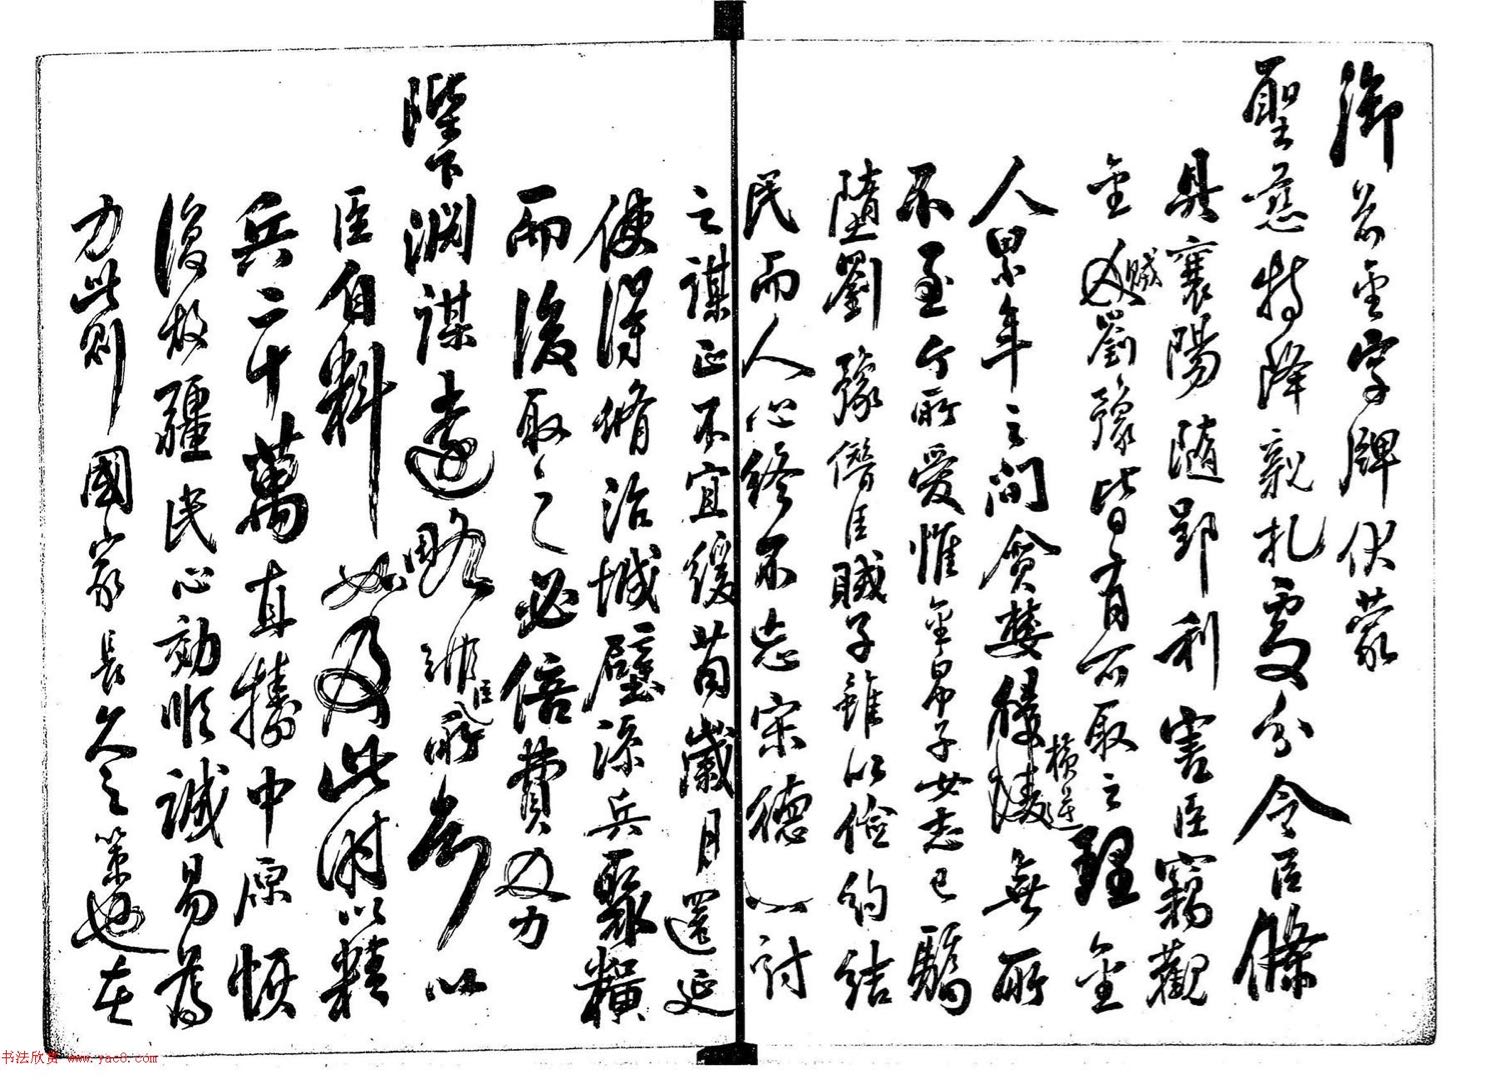 御前金字牌伏蒙
聖慈特降親札處分令臣條
具襄陽隨郢利害臣竊觀
金賊劉豫皆有可取之理金
人累年之間貪婪橫逆無所
不至今所愛惟金帛子女志已驕
墮劉豫僭臣賊子雖以儉約結
民而人心終不忘宋德以討
之謀正不宜緩苟歲月遷延
使得脩治城壁添兵聚糧
而後取之必倍費力
陛下淵謀遠略非臣所知以
臣自料如及此時以精
兵二十萬直擣中原恢
復故疆民心効順誠易為
力此則國家長久之策也在
书法欣赏 www.yac8.com